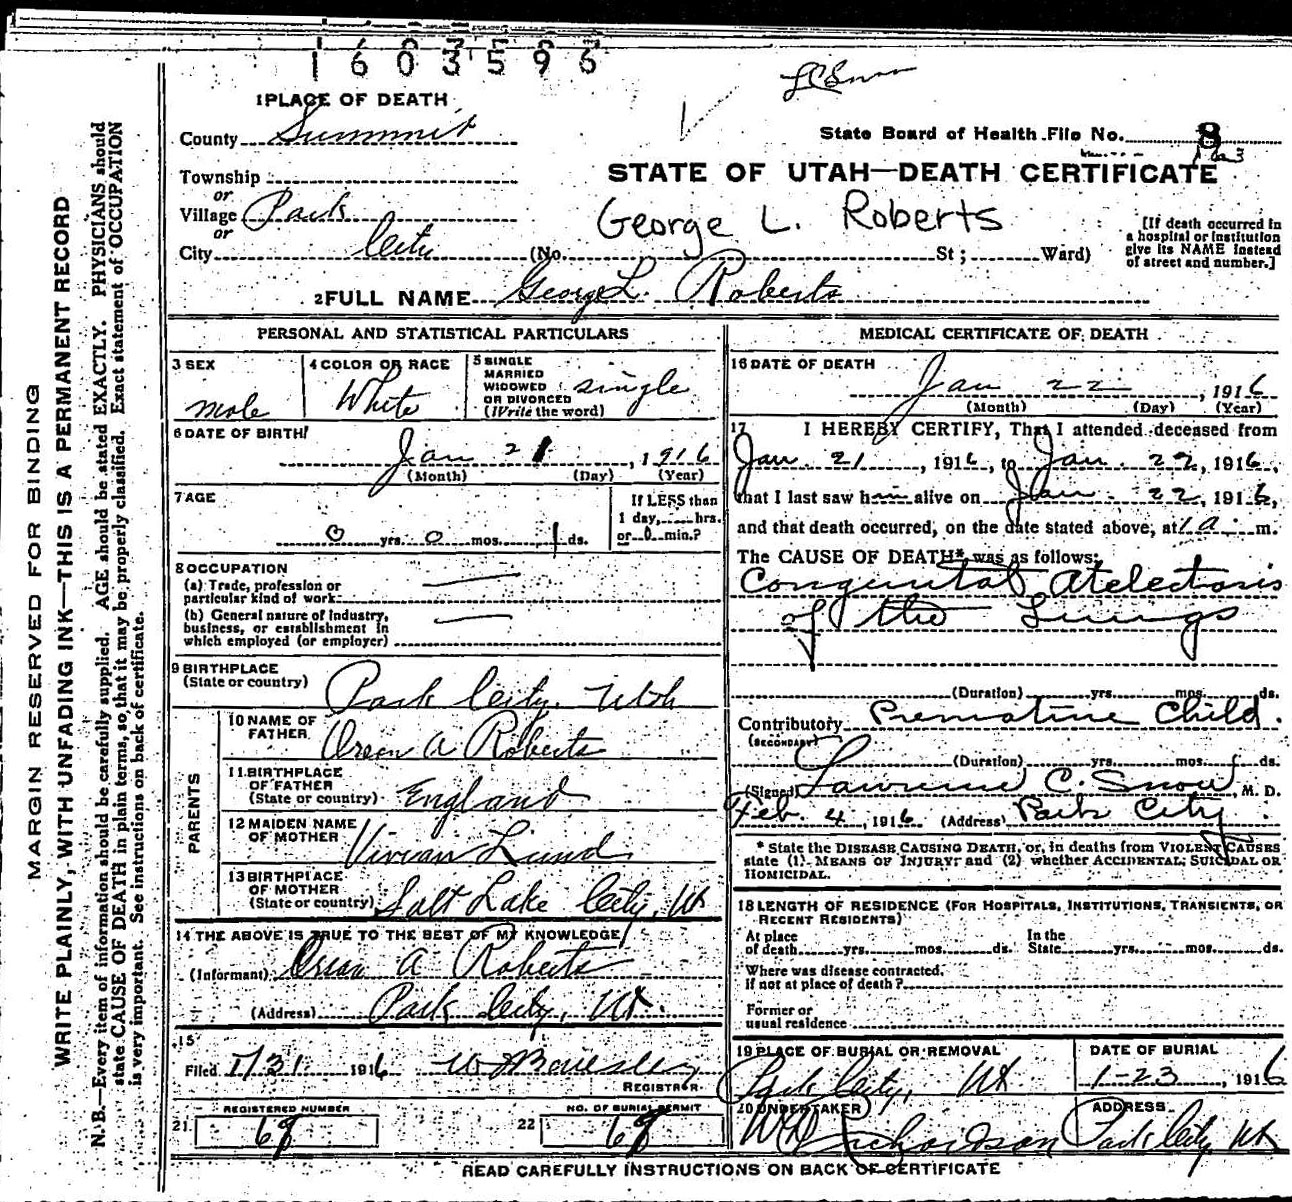 1603596
LCSnow
1 PLACE OF DEATH
County Summit
State Board of Health File No. 8
163
STATE OF UTAH—DEATH CERTIFICATE
Township
or
Village Park
or
City City
George L. Roberts
(No. St; Ward)
[If death occurred in
a hospital or institution
give its NAME instead
of street and number.]
2 FULL NAME George L. Roberts
PERSONAL AND STATISTICAL PARTICULARS
3 SEX
male
4 COLOR OR RACE
White
5 SINGLE
MARRIED
WIDOWED
OR DIVORCED
(Write the word)
single
6 DATE OF BIRTH
Jan 21, 1916
(Month) (Day) (Year)
7 AGE
0 yrs. 0 mos. 1 ds.
If LESS than
1 day, hrs.
or 0 min.?
8 OCCUPATION
(a) Trade, profession or
particular kind of work
(b) General nature of industry,
business, or establishment in
which employed (or employer)
9 BIRTHPLACE
(State or country) Park City, Utah
PARENTS
10 NAME OF
FATHER Orson A Roberts
11 BIRTHPLACE
OF FATHER
(State or country) England
12 MAIDEN NAME
OF MOTHER Vivian Lund
13 BIRTHPLACE
OF MOTHER
(State or country) Salt Lake City, Ut
14 THE ABOVE IS TRUE TO THE BEST OF MY KNOWLEDGE
(Informant) Orson A Roberts
(Address) Park City, Ut.
15
Filed 1/31 1916
REGISTRAR
REGISTERED NUMBER
21 68
NO. OF BURIAL PERMIT
22 68
MEDICAL CERTIFICATE OF DEATH
16 DATE OF DEATH
Jan 22, 1916
(Month) (Day) (Year)
17 I HEREBY CERTIFY, That I attended deceased from
Jan. 21, 1916, to Jan. 22, 1916,
that I last saw him alive on Jan. 22, 1916,
and that death occurred, on the date stated above, at 1 a. m.
The CAUSE OF DEATH* was as follows:
Congenital Atelectasis
of the Lungs
(Duration) yrs. mos. ds.
Contributory Premature Child.
(SECONDARY)
(Duration) yrs. mos. ds.
(Signed) Lawrence C. Snow, M. D.
Feb. 4, 1916 (Address) Park City.
* State the DISEASE CAUSING DEATH, or, in deaths from VIOLENT CAUSES
state (1) MEANS OF INJURY; and (2) whether ACCIDENTAL, SUICIDAL OR
HOMICIDAL.
18 LENGTH OF RESIDENCE (FOR HOSPITALS, INSTITUTIONS, TRANSIENTS, OR
RECENT RESIDENTS)
At place
of death yrs. mos. ds.
In the
State yrs. mos. ds.
Where was disease contracted,
if not at place of death?
Former or
usual residence
19 PLACE OF BURIAL OR REMOVAL
Park City, Ut.
DATE OF BURIAL
1-23, 1916
20 UNDERTAKER
Richardson
ADDRESS
Park City, Ut
READ CAREFULLY INSTRUCTIONS ON BACK OF CERTIFICATE
MARGIN RESERVED FOR BINDING
WRITE PLAINLY, WITH UNFADING INK—THIS IS A PERMANENT RECORD
N. B.—Every item of information should be carefully supplied. AGE should be stated EXACTLY. PHYSICIANS should
state CAUSE OF DEATH in plain terms, so that it may be properly classified. Exact statement of OCCUPATION
is very important. See instructions on back of certificate.